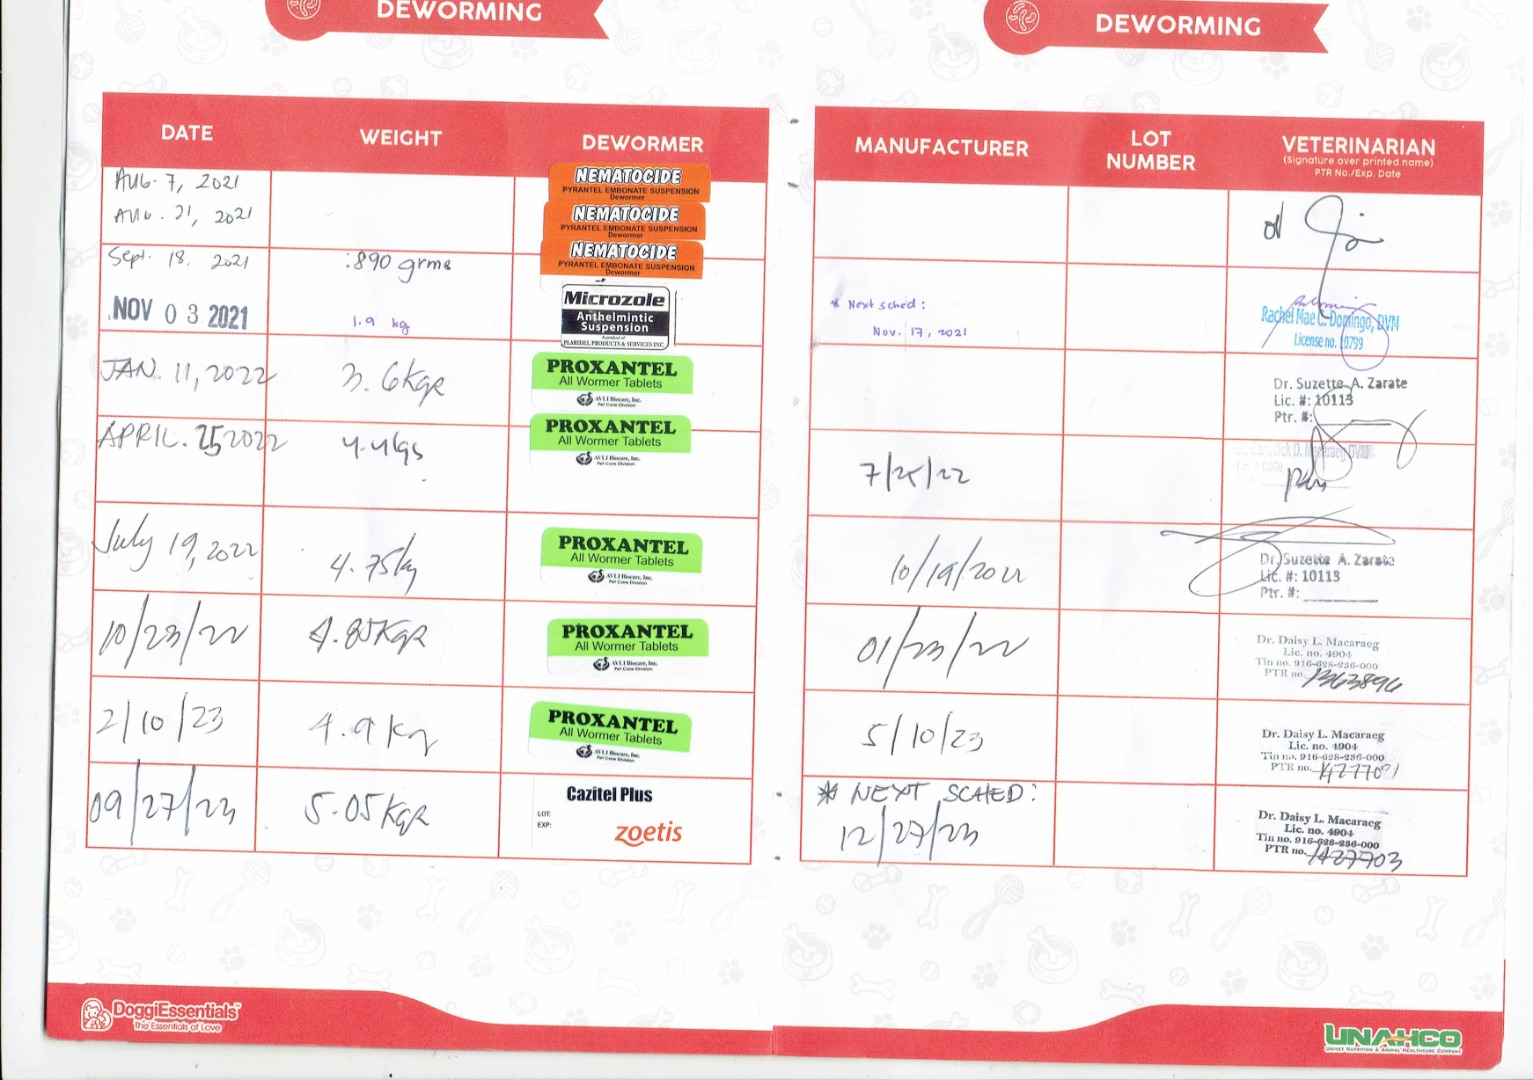 DEWORMING
DEWORMING
DATE WEIGHT DEWORMER MANUFACTURER LOT NUMBER VETERINARIAN
(Signature over printed name)
PTR No./Exp. Date
AUG. 7, 2021
NEMATOCIDE
PYRANTEL EMBONATE SUSPENSION
Dewormer
AUG. 21, 2021
NEMATOCIDE
PYRANTEL EMBONATE SUSPENSION
Sept. 18. 2021 .890 grms
NEMATOCIDE
PYRANTEL EMBONATE SUSPENSION
Dewormer
NOV 03 2021 1.9 kg
Microzole
Anthelmintic
Suspension
A product of
PLARIDEL PRODUCTS & SERVICES INC.
* Next sched:
Nov. 17, 2021
Rachel Mae C. Domingo, DVM
License no. 10799
JAN. 11, 2022 3.6kgs
PROXANTEL
All Wormer Tablets
AVLI Biocare, Inc.
Pet Care Division
Dr. Suzette A. Zarate
Lic. #: 10113
Ptr. #:
APRIL. 25 2022 4.4kgs
PROXANTEL
All Wormer Tablets
AVLI Biocare, Inc.
Pet Care Division
7/25/22
July 19, 2022 4.75kg
PROXANTEL
All Wormer Tablets
AVLI Biocare, Inc.
Pet Care Division
10/19/2022
Dr. Suzette A. Zarate
Lic. #: 10113
Ptr. #:
10/23/22 4.85Kgs
PROXANTEL
All Wormer Tablets
AVLI Biocare, Inc.
Pet Care Division
01/23/22
Dr. Daisy L. Macaraeg
Lic. no. 4904
Tin no. 916-628-236-000
PTR no. 1363896
2/10/23 4.9kg
PROXANTEL
All Wormer Tablets
AVLI Biocare, Inc.
Pet Care Division
5/10/23
Dr. Daisy L. Macaraeg
Lic. no. 4904
Tin no. 916-628-236-000
PTR no.
09/27/23 5.05Kgs
Cazitel Plus
LOT:
EXP:
zoetis
* NEXT SCHED:
12/27/23
Dr. Daisy L. Macaraeg
Lic. no. 4904
Tin no. 916-628-236-000
PTR no. 1427703
DoggiEssentials
The Essentials of Love
UNAHCO
UNIVET NUTRITION & ANIMAL HEALTHCARE COMPANY